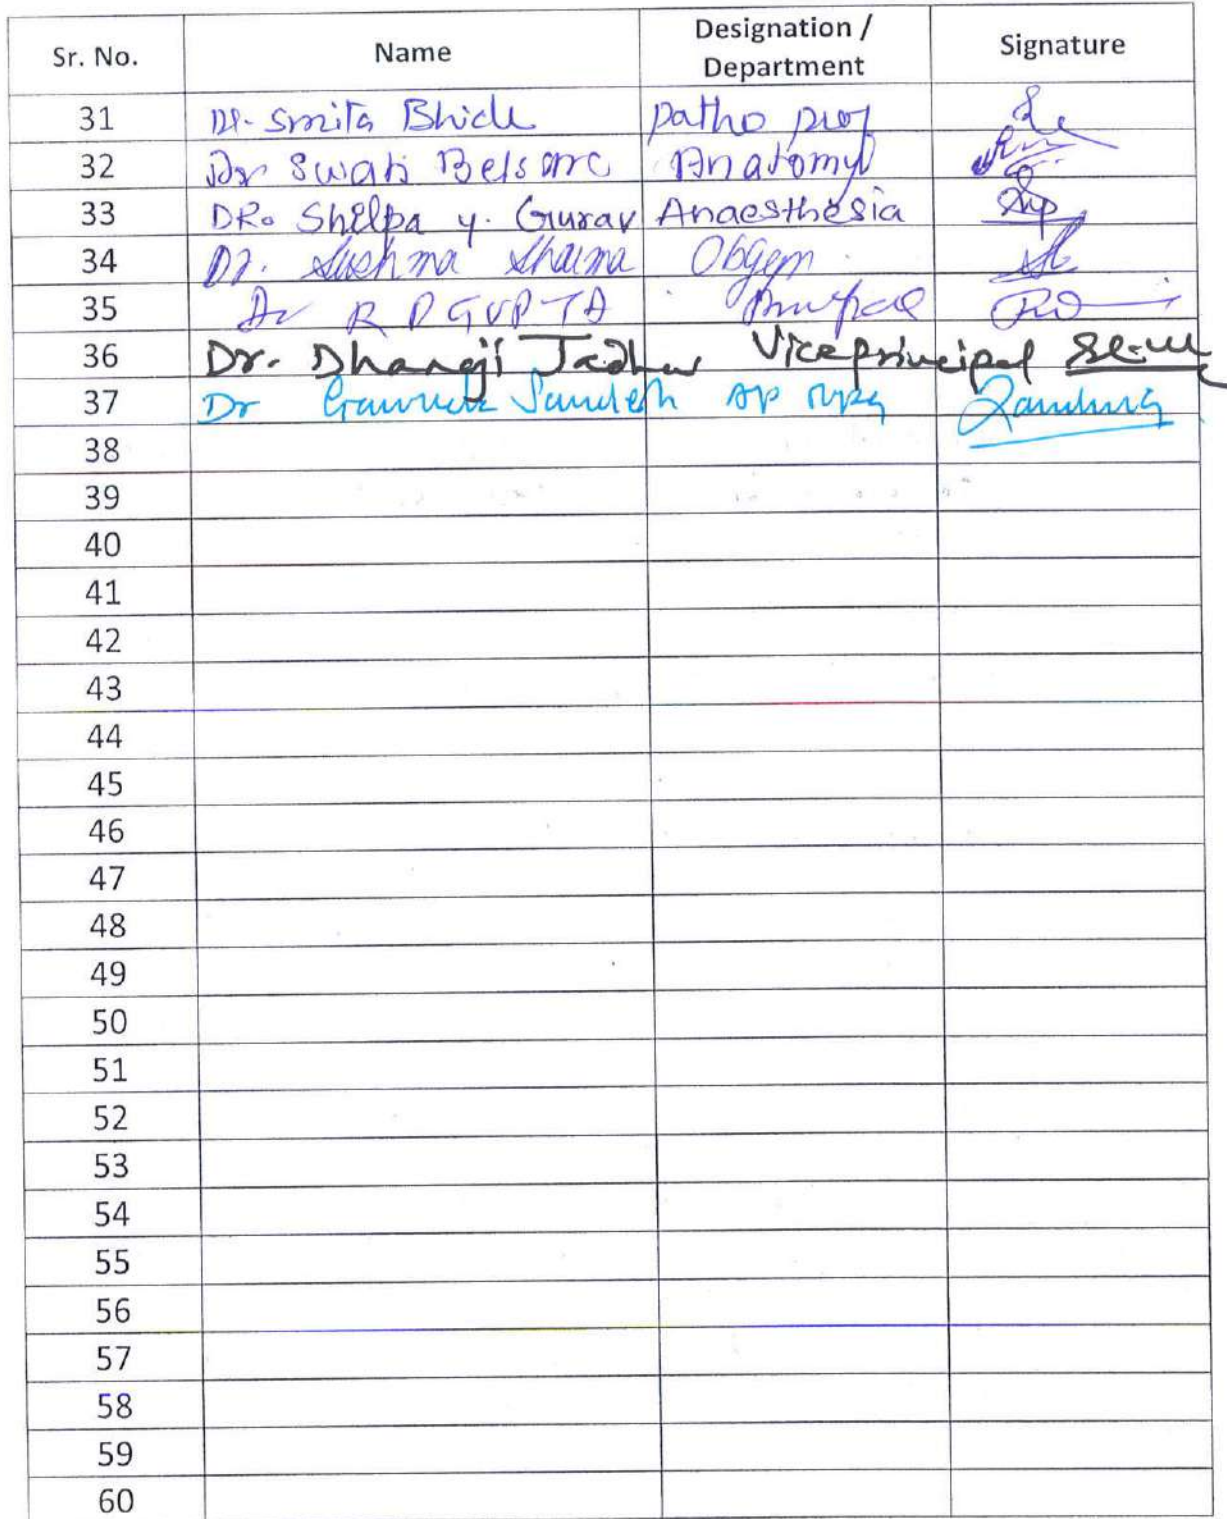 Sr. No. Name Designation / Department Signature
31 Dr. Smita Bhide patho prof
32 Dr Swati Belsare Anatomy
33 DR. Shilpa y. Gurav Anaesthesia
34 Dr. Sushma Sharma Obgyn
35 Dr R D GUPTA Principal
36 Dr. Dhanaji Jadhav Viceprincipal
37 Dr Sandesh
38
39
40
41
42
43
44
45
46
47
48
49
50
51
52
53
54
55
56
57
58
59
60